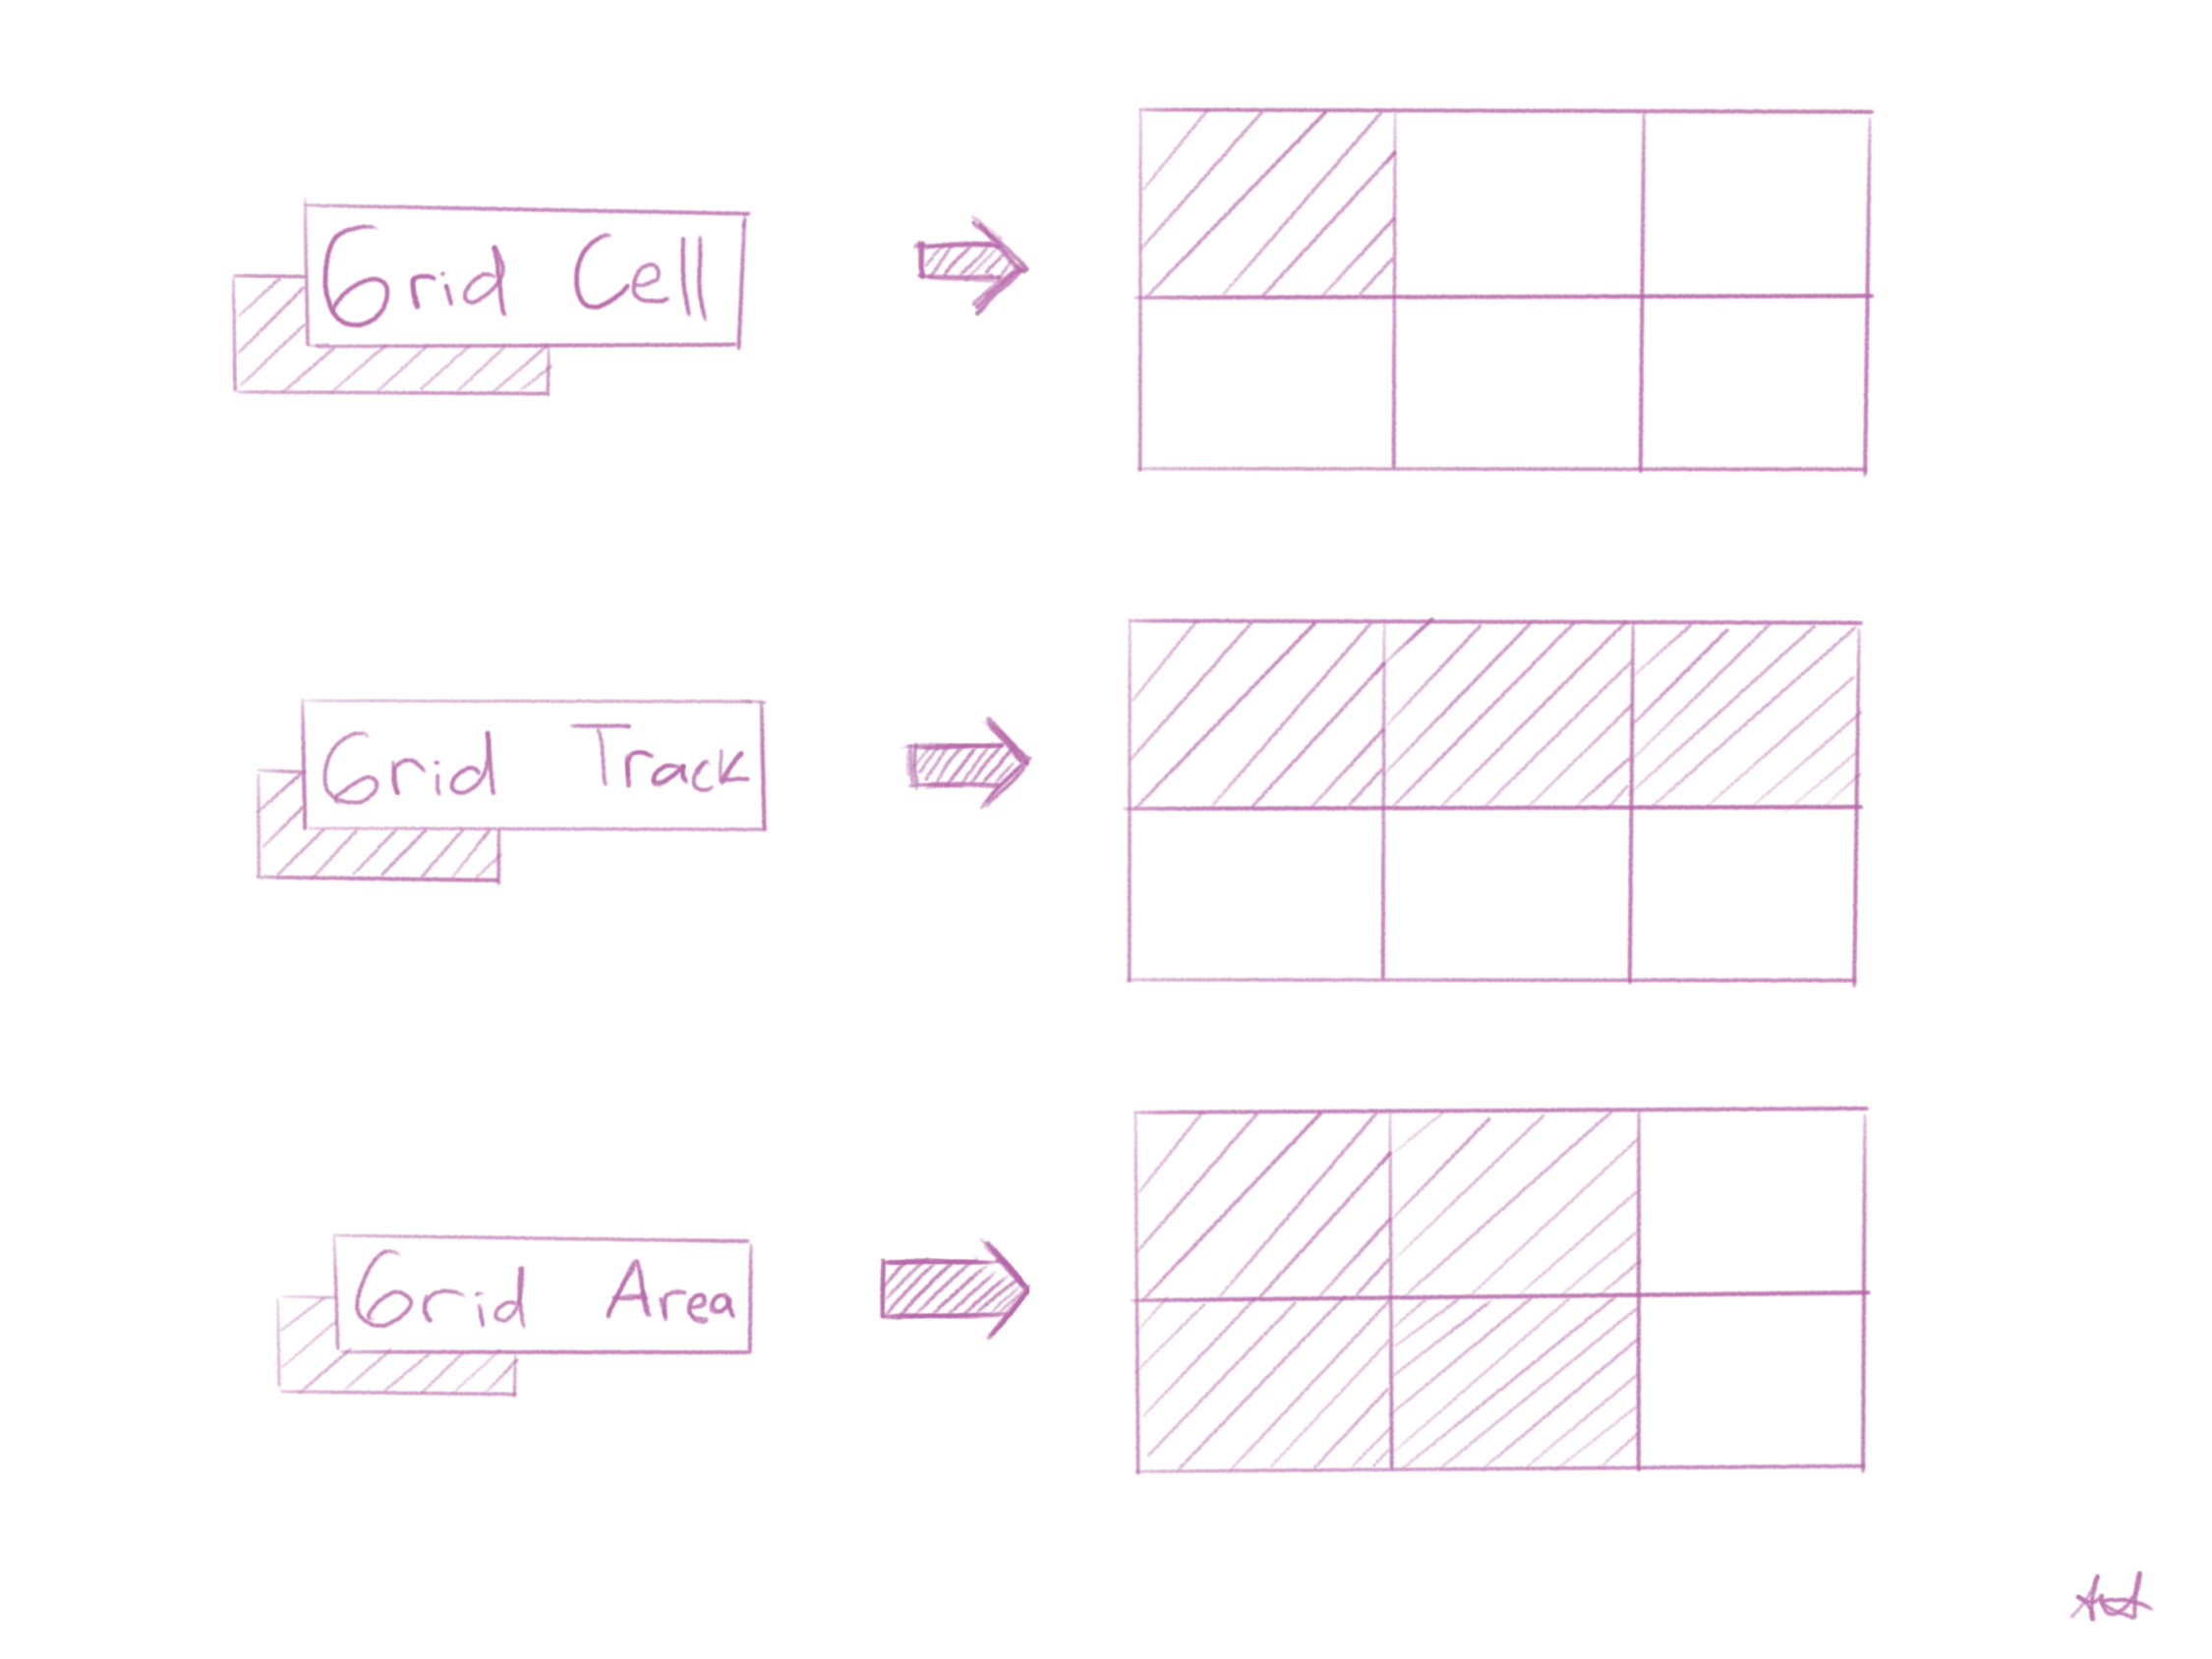 Grid Cell
Grid Track
Grid Area